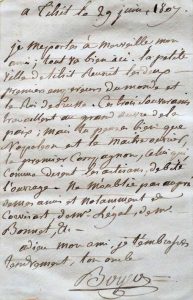 a Tilsit le 29 juin, 1807
je me porte à merveille mon
ami; tout va bien ici. la petite
ville de Tilsit réunit les deux
premiers empereurs du monde et
le Roi de Prusse. Ces trois souverains
travaillent au grand œuvre de la
paix; mais je pense bien que
Napoléon est le maitre ouvrier,
le premier compagnon, celui qui
comme disent les artisans, debite
l'ouvrage. Ne m'oubliez pas auprès
de mes amis et notamment de
Corvisart, de Mr. de
Bonnet, &c.
adieu mon ami, je t'embrasse
tendrement, ton
Boyer